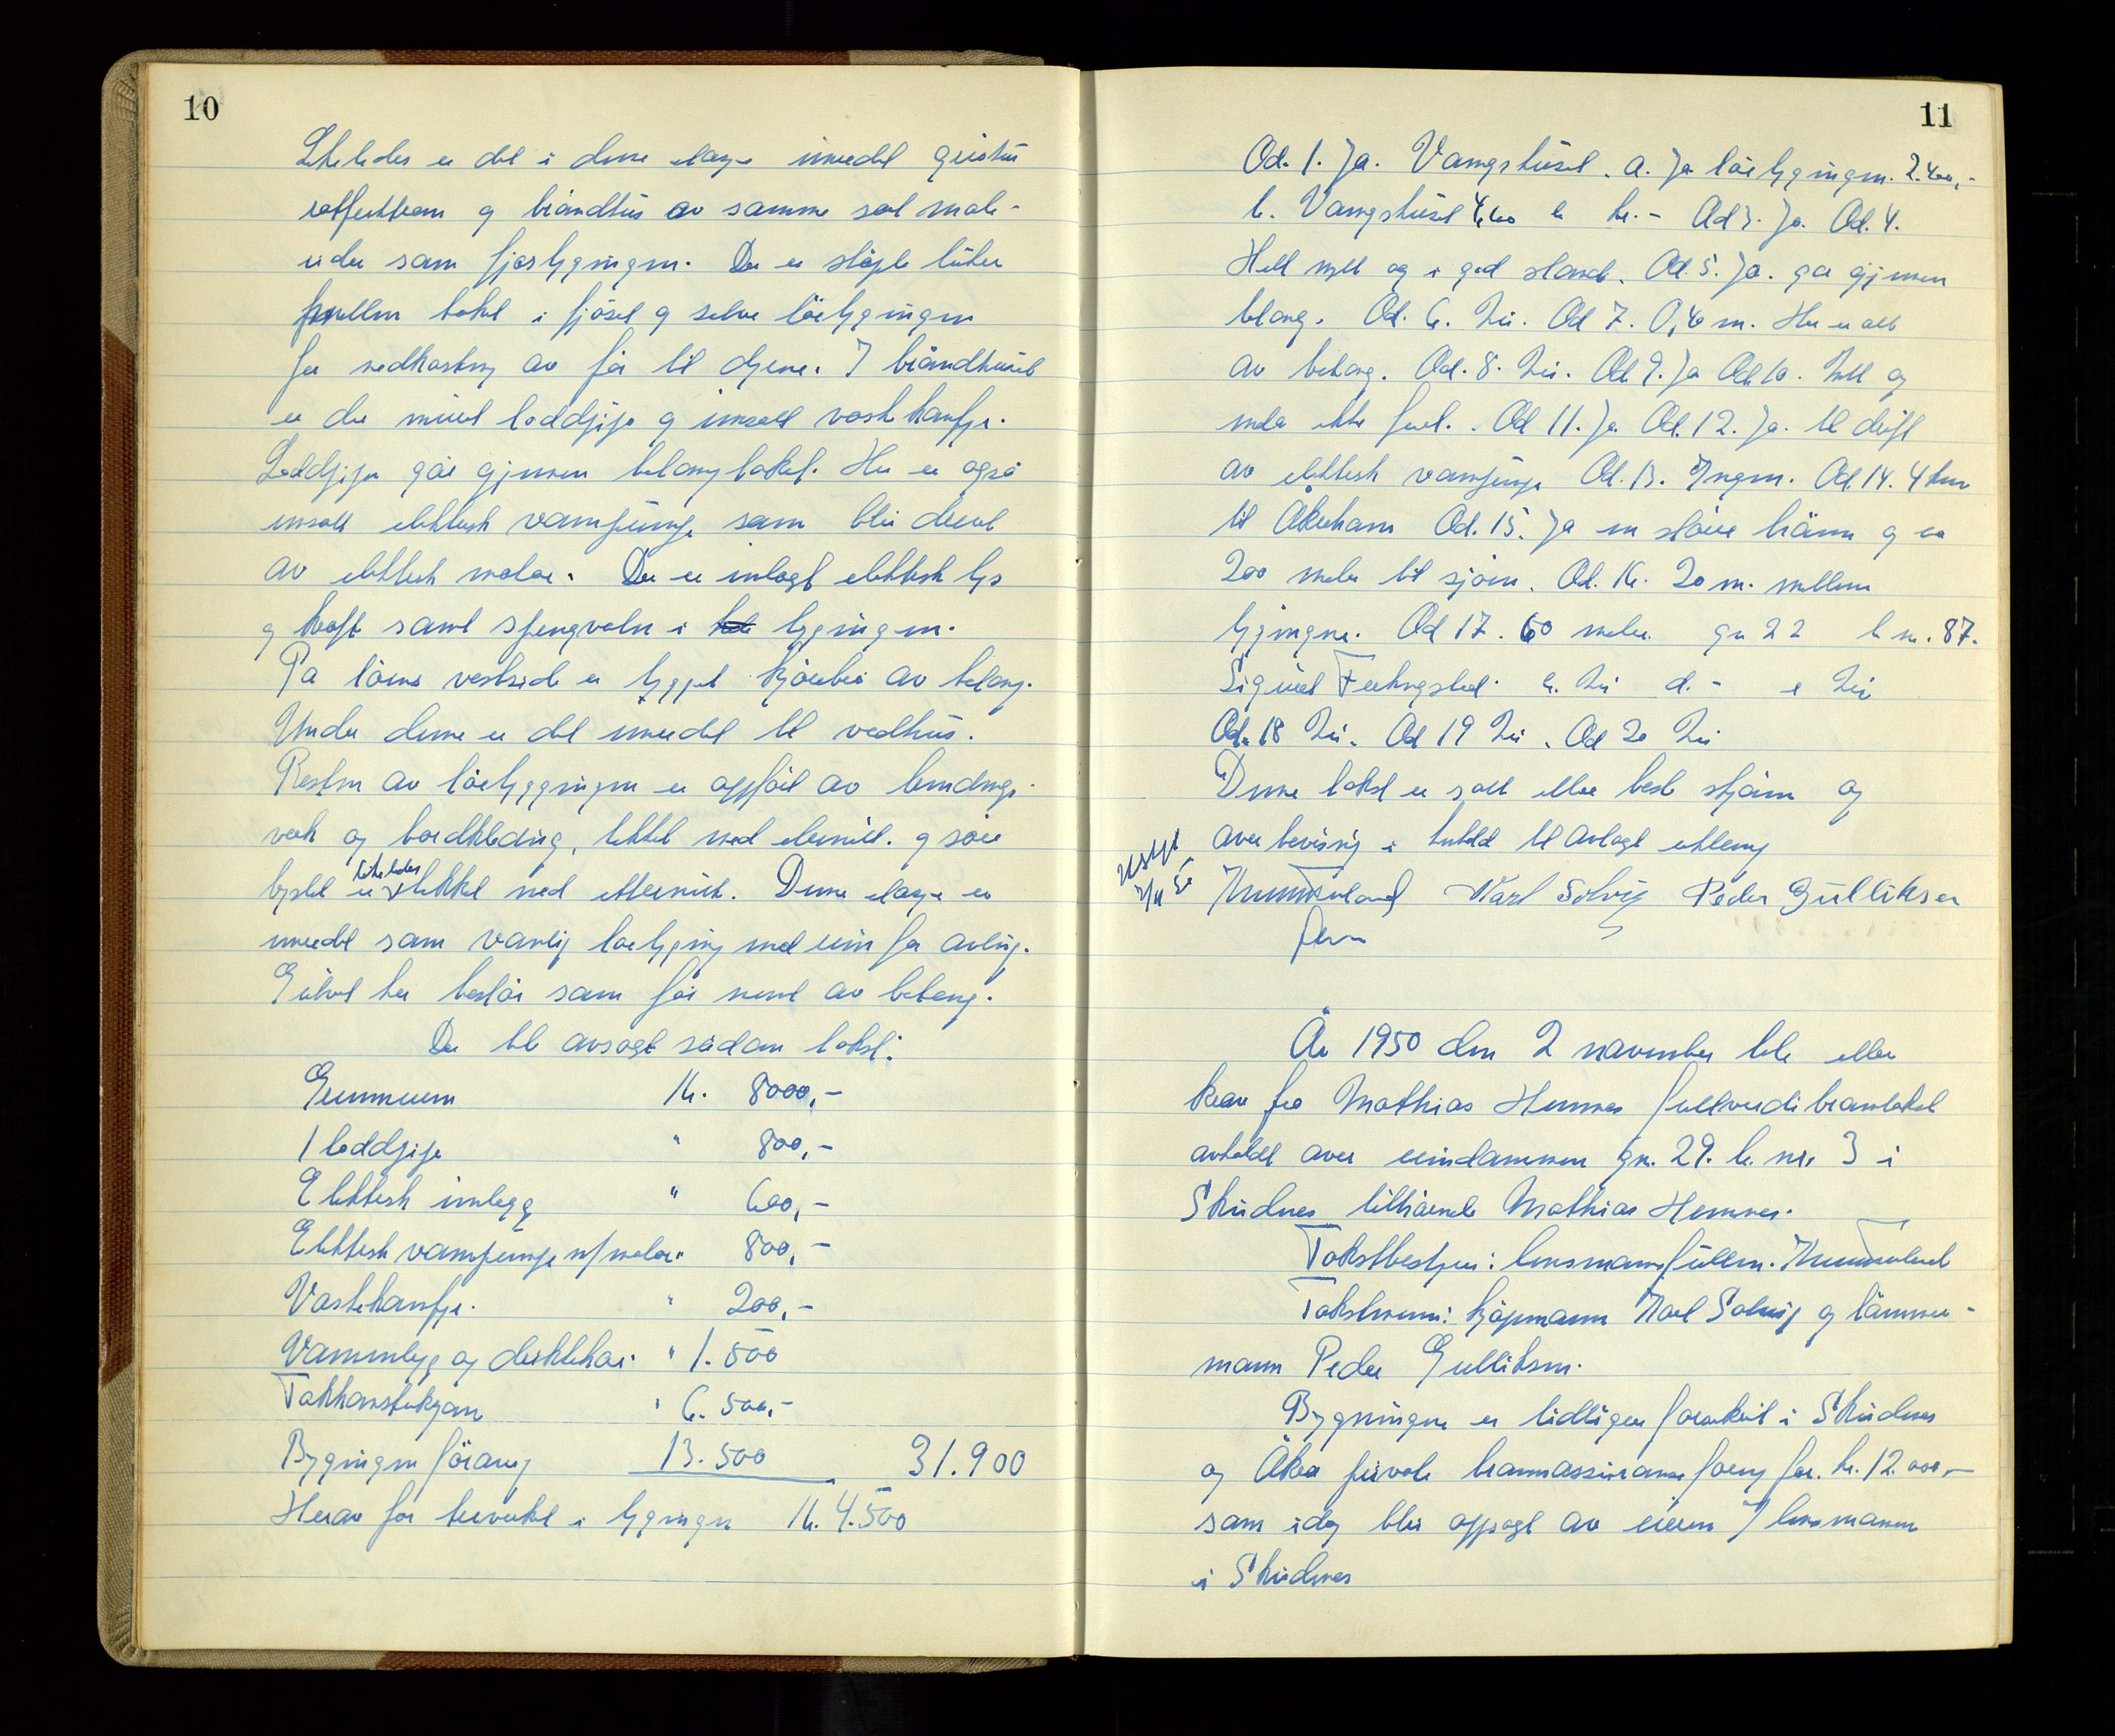 10
Likeledes er det i denne etasje inredet grisehus
potteskteam og brandhus av samme sort mate-
rialer som fjosbygningen. Der er støpte luker
mellem taket i fjøset og selve løebygningen
for nedkasting av for til dyrene. I brandhuset
er der muret loddpipe og innsatt vaskekanfpe.
Loddpipen går gjennem betongtaket. Her er også
innsatt elektrisk vannpumpe som blir drevet
av elektrisk motor. Der er inlagt elektrisk lys
og kraft samt springvatn i bygningen.
På løens vestside er bygget kjørebro av betong.
Under denne er det inredet til vedhus.
Resten av løebyggningen er oppført av bindings-
verk og bordkledning, tekket med eternitt. og søre
byslet er likeledes tekket med etternitt. Denne etasje er
inredet som vanlig løebygning med rum for avling.
Gulvet her består som før nevnt av betong.
Der ble avsagt sådan takst:
Grunnmuren Kr. 8000,-
1 loddpipe " 800,-
Elektrisk innlegg " 600,-
Elektrisk vannpumpe m/motor " 800,-
Vaskekanfpe. " 200,-
Vanninlegg og drikkekar " 1.500
Takkonstuksjon " 6.500,-
Bygningen forøvrig 13.500 31.900
Herav for treverket i bygningen Kr. 4.500
11
Od. 1. Ja. Vaningshuset. a. Ja løebygningen. 2.400,-
b. Vaningshuset 4,600 c kr. - Ad 3. Ja. Od. 4.
Helt nytt og i god stand. Od. 5. Ja. går gjennem
betong. Od. 6. Nei. Od 7. 0,40 m. Her er alt
av betong. Od. 8. Nei. Od 9. Ja Od 10. Intet og
meter ikke fast. Od 11. Ja Od. 12. Ja. til drift
av elektrisk vannpumpe Od. 13. Ingen. Od. 14. 4 km
til Åkrehamn Od. 15. Ja en større brønn og ca
200 meter til sjøen. Od. 16. 20 m. mellem
bygningene. Od 17. 60 meter. gn 22 b nr. 87.
Sigurd Ferkingstad. c. Nei d. - e Nei
Od. 18 Nei. Od 19 Nei. Od 20 Nei
Denne takst er satt etter beste skjønn og
overbevisning i henhold til avlagt erklæring
Utskrift
2/11 50
Karl Solvig Peder Gulliksen
År 1950 den 2 november ble etter
krav fra Mathias Hemnes fullverdi branntakst
avholdt over eiendommen gn. 29. b. nr. 3 i
Skudnes tilhørende Mathias Hemnes.
Takstbestyrer: lensmannsfullm.
Takstmenn: kjøpmann Karl Solvig og tømmer-
mann Peder Gulliksen.
Bygningene er tidligere forsikret i Skudnes
og Åkra private brannassuranseforeng for. kr. 12.000,-
som idag blir oppsagt av eieren I lensmannen
i Skudnes